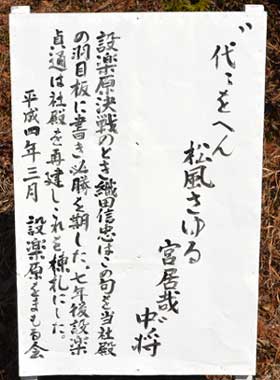 代々をへん
松風さゆる
宮居哉
中将
設楽原決戦のとき織田信忠はこの句を当社殿
の羽目板に書き必勝を期した。七年後設楽
貞通は社殿を再建しこれを棟札にした。
平成四年三月　設楽原をまもる会